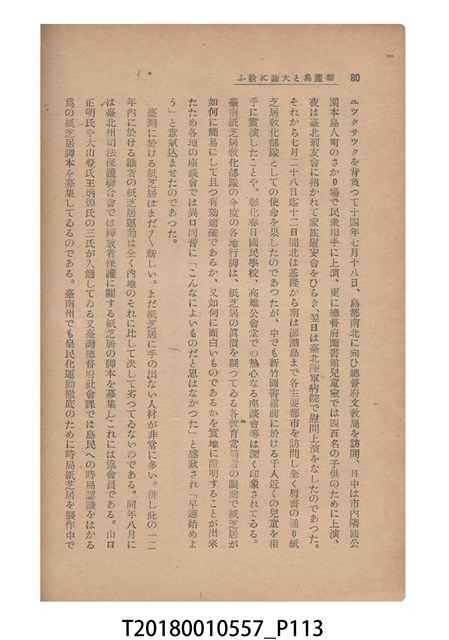 80
華麗島と大陸に拾ふ
ユツクサツクを背負つて十四年七月十八日、島都南北に向ひ總督府文敎局を訪問、日中は市內
園本島人町のさかり場で民衆相手に上演、更に總督府圖書館兒童室では四百名の子供のために上演、
夜は臺北刑友會に招かれて家族慰安會をひらき、翌日は臺北陸軍病院で慰問上演をなしたのであつた。
それから七月二十八日迄十二日間北は基隆から南は澎湖島まで各主要都市を訪問し全く肩書の通り紙
芝居敎化部隊としての使命を果したのであつたが、中でも新竹圖書館前に於ける千人近くの兒童を相
手に實演したことや、彰化春日國民學校、高雄公會堂での熱心なる座談會等は深く印象されてゐる。
臺南紙芝居敎化部隊の今度の各地行脚は、紙芝居の眞價を疑つてゐる各敎育當局者の眼前で紙芝居が
如何に簡易にして且つ有効適確であるか、又如何に面白いものであるかを實地に證明することが出來
たため各地の座談會では異口同音に「こんなによいものだと思はなかつた」と感歎され「早速始めよ
う」と意氣込ませたのであつた。
臺灣に於ける紙芝居はまだ〳〵新しい。まだ紙芝居に手の出ない人材が非常に多い。併し此の一二
年內に於ける識者の紙芝居運動は全く內地のそれに比して決して劣つてゐないのである。同年八月に
は臺北州司法保護聯合會では釋放者保護に關する紙芝居の脚本を募集しこれには協會員である。山口
正明氏や大山登氏王炳煌氏の三氏が入選してゐる又臺灣總督府社會課では島民への時局認識をはかる
爲の紙芝居脚本を募集してゐるのである。臺南州でも皇民化運動徹底のために時局紙芝居を製作中で
T20180010557_P113